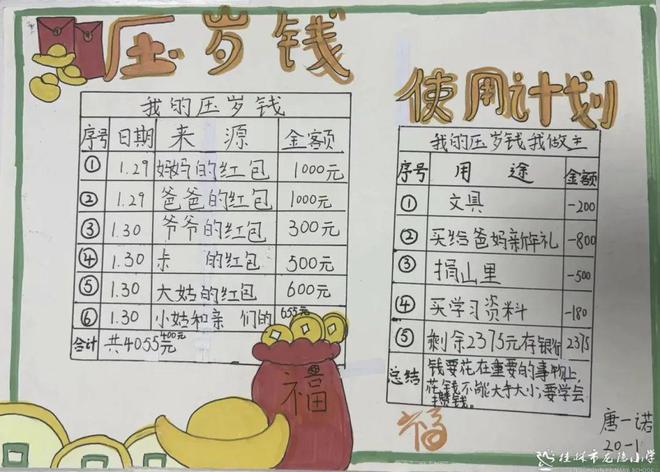 压岁钱
使用计划
我的压岁钱
序号 日期 来源 金额
① 1.29 妈妈的红包 1000元
② 1.29 爸爸的红包 1000元
③ 1.30 爷爷的红包 300元
④ 1.30 的红包 500元
⑤ 1.30 大姑的红包 600元
⑥ 1.30 小姑和亲 们的 655元
合计 共4055元
我的压岁钱我做主
序号 用途 金额
① 文具 -200
② 买给爸妈新年礼 -800
③ 捐山里 -500
④ 买学习资料 -180
⑤ 剩余2375元存银行 2375
总结 钱要花在重要的事物上,
花钱不能大手大小,要学会
攒钱。
福
福
唐一诺
20-1
桂林市龙隐小学